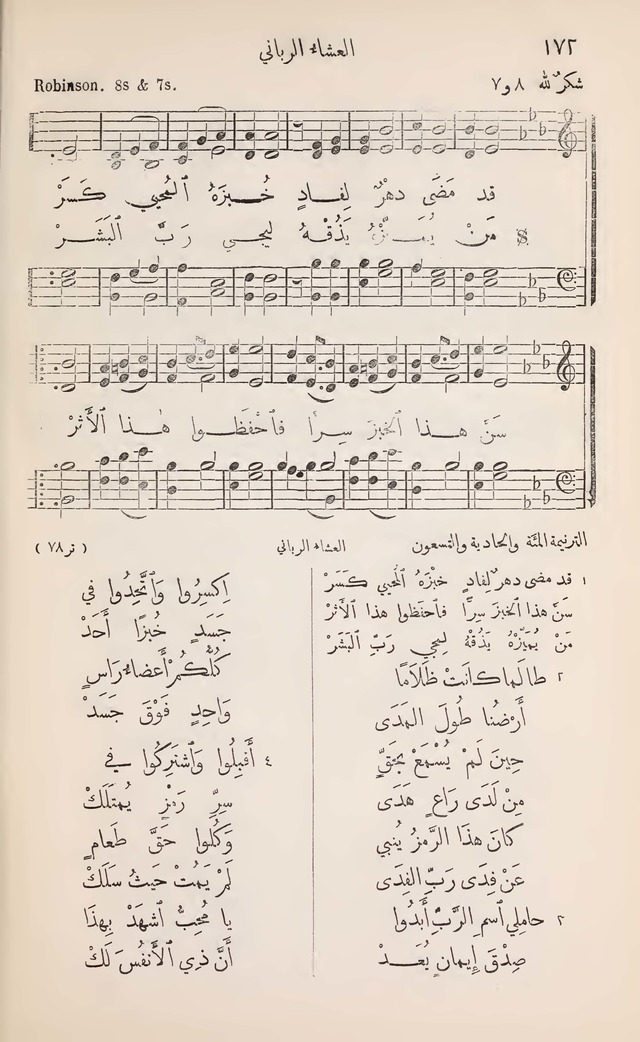 ١٧٢
العشاء الرباني
شكرٌ لله ٨ و٧
Robinson. 8s & 7s.
قد مَضَى دهرٌ لِفادٍ خُبزَهُ ٱلمُحيي كَسَرْ
𝄋 مَنْ يُمَيِّزْهُ يَذُقْهُ لِيجي رَبُّ ٱلبَشَرْ
سَنَّ هـذا ٱلخبزَ سِرًّا فٱحْفَظوا هٰذا ٱلأَثرْ
الترنيمة المئة والحادية والتسعون
العشاء الرباني
( تر٧٨ )
١ قد مضى دهرٌ لِفادٍ خبزَهُ ٱلمحيي كَسَرْ
سَنَّ هذا ٱلخبزَ سِرًّا فٱحفظوا هذا ٱلأثرْ
مَنْ يُمَيِّزْهُ يَذُقْهُ لِيجي رَبُّ ٱلبَشَرْ
٢ طالَما كانَتْ ظَلَامًا
أَرْضُنا طُولَ المَدَى
حِينَ لَمْ يُسْمَعْ بِحَقٍّ
مِنْ لَدَى رَاعٍ هَدَى
كانَ هذَا الرَّمزُ يُنبي
عَنْ فِدَى رَبِّ الفِدَى
٢ حامِلي ٱسمِ الرَّبِّ أَبدُوا
صِدْقَ إِيمانٍ يُعَـدْ
اِكسِرُوا وَٱتَّحِدُوا في
جَسَدٍ خُبزًا أَحَدْ
كُلُّكُمْ أَعضاءُ رَاسٍ
وَاحِدٍ فَوْقَ جَسَدْ
٤ أَقبِلُوا وَٱشتَرِكُوا في
سِرِّ رَمْزٍ يُمتَلَكْ
وَكُلوا حَقَّ طَعامٍ
لَمْ يَمُتْ حَيثُ سَلَكْ
يا مُحِبُّ ٱشهَدْ بِهذَا
أَنَّ ذي ٱلأَنفُسَ لَكْ